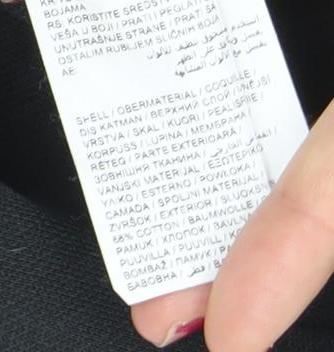 BOJAMA.
RS: KORISTITE SREDSTV
VEŠA U BOJI / PRATI I PEGLATI
UNUTRAŠNJE STRANE / PRAT SA
OSTALIM RUBLJEM SLIČNIH BOJA
AE:
SHELL / OBERMATERIAL / COQUILLE /
DIŞ KATMAN / ВЕРХНИЙ СЛОЙ / VNĚJŠÍ
VRSTVA / SKAL / KUORI / PEALISRIIE /
KORPUSS / LUPINA / МЕМБРАНА /
RÉTEG / PARTE EXTERIOARĂ /
ЗОВНІШНЯ ТКАНИНА / الخارجي القماش /
VANJSKI MATERIJAL / ΕΞΩΤΕΡΙΚΟ
ΥΛΙΚΟ / ESTERNO / POWŁOKA /
CAMADA / SPOLJNI MATERIJAL /
ZVRŠOK / EXTERIOR / SLUOKSN
68% COTTON / BAUMWOLLE / CO
PAMUK / ХЛОПОК / BAVLN
PUUVILLA / PUUVILL / KO
BOMBAŽ / ПАМУК / PA
БАВОВНА / قطن / BA